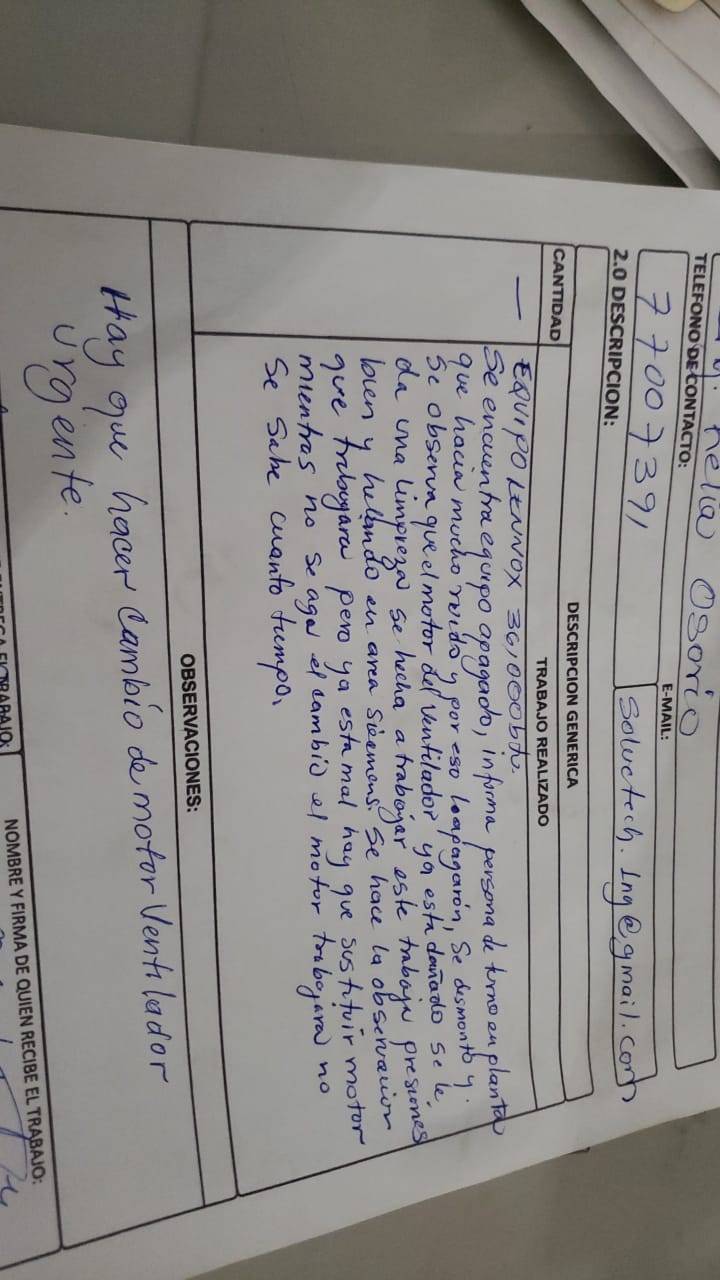 Osorio
TELEFONO DE CONTACTO:
E-MAIL:
77007391
Soluctech.Ing@gmail.com
2.0 DESCRIPCION:
DESCRIPCION GENERICA
CANTIDAD
TRABAJO REALIZADO
— EQUIPO LENNOX 36,000btu.
Se encuentra equipo apagado, informa persona de turno en planta
que hacia mucho ruido y por eso lo apagarón, Se desmonto y.
Se observa que el motor del ventilador ya está dañado se le
da una limpieza se hecha a trabajar este trabaja presiones
bien y helando en area siemens. Se hace la observacion
que trabajara pero ya esta mal hay que sustituir motor
mientras no se aga el cambio el motor trabajara no
Se Sabe cuanto tiempo.
OBSERVACIONES:
Hay que hacer Cambio de motor Ventilador
Urgente.
TRABAJO:
NOMBRE Y FIRMA DE QUIEN RECIBE EL TRABAJO: